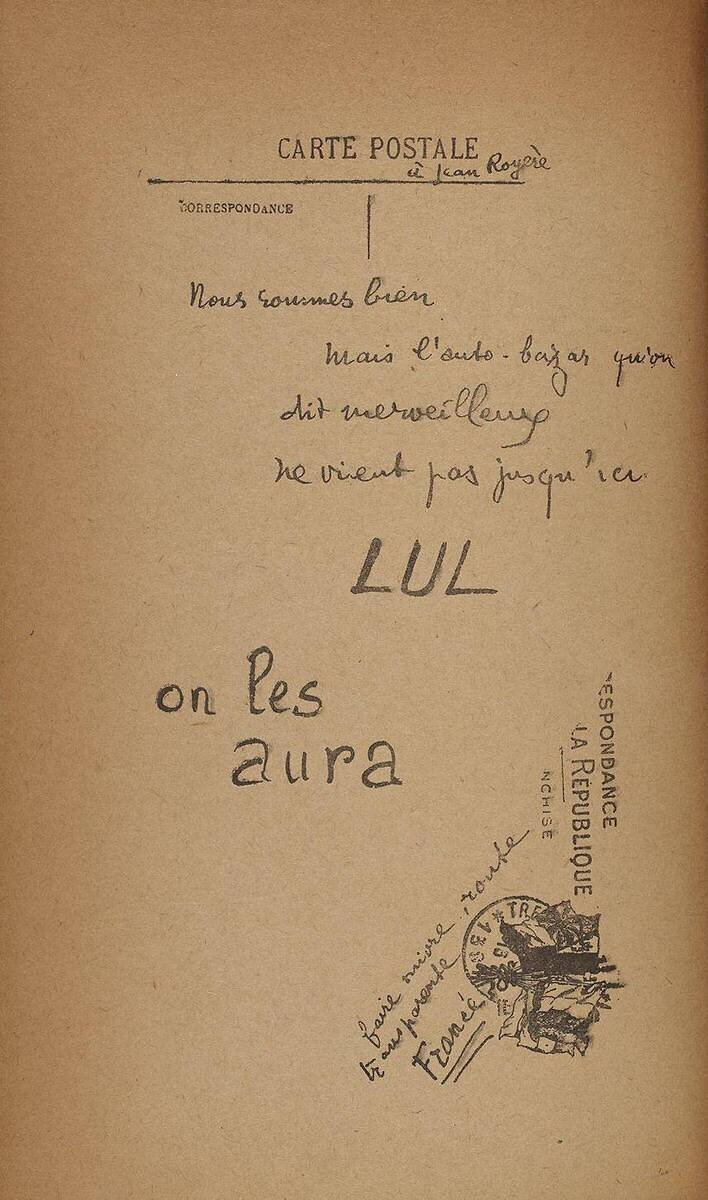 CARTE POSTALE
à Jean Royère
CORRESPONDANCE
Nous sommes bien
Mais l'auto-bazar qu'on
dit merveilleux
ne vient pas jusqu'ici
LUL
on les
aura
ESPONDANCE
LA RÉPUBLIQUE
NCHISE
faire suivre route
transparente
France
TRE
139